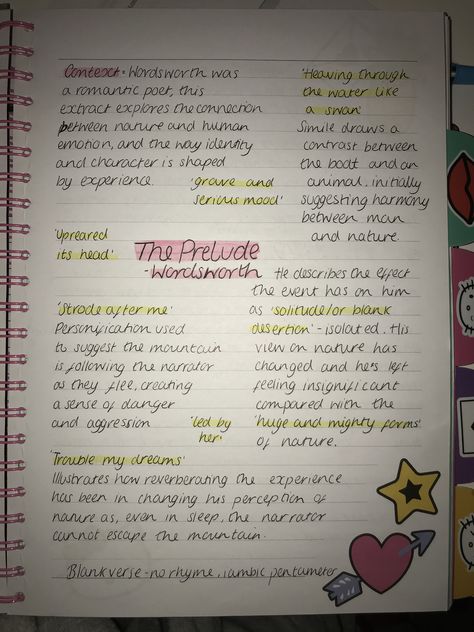 Context - Wordsworth was
a romantic poet, this
extract explores the connection
between nature and human
emotion, and the way identity
and character is shaped
by experience.
'grave and
serious mood'
'Heaving through
the water like
a swan'
Simile draws a
contrast between
the boat and an
animal. initially
suggesting harmony
between man
and nature.
'Upreared
its head'
The Prelude
-Wordsworth
He describes the effect
the event has on him
as 'solitude/or blank
desertion' - isolated. His
view on nature has
changed and he's left
feeling insignificant
compared with the
'huge and mighty forms'
of nature.
'Strode after me'
Personification used
to suggest the mountain
is following the narrator
as they flee, creating
a sense of danger
and aggression
'led by
her'
'Trouble my dreams'
Illustrates how reverberating the experience
has been in changing his perception of
nature as, even in sleep, the narrator
cannot escape the mountain.
Blank verse - no rhyme, iambic pentameter